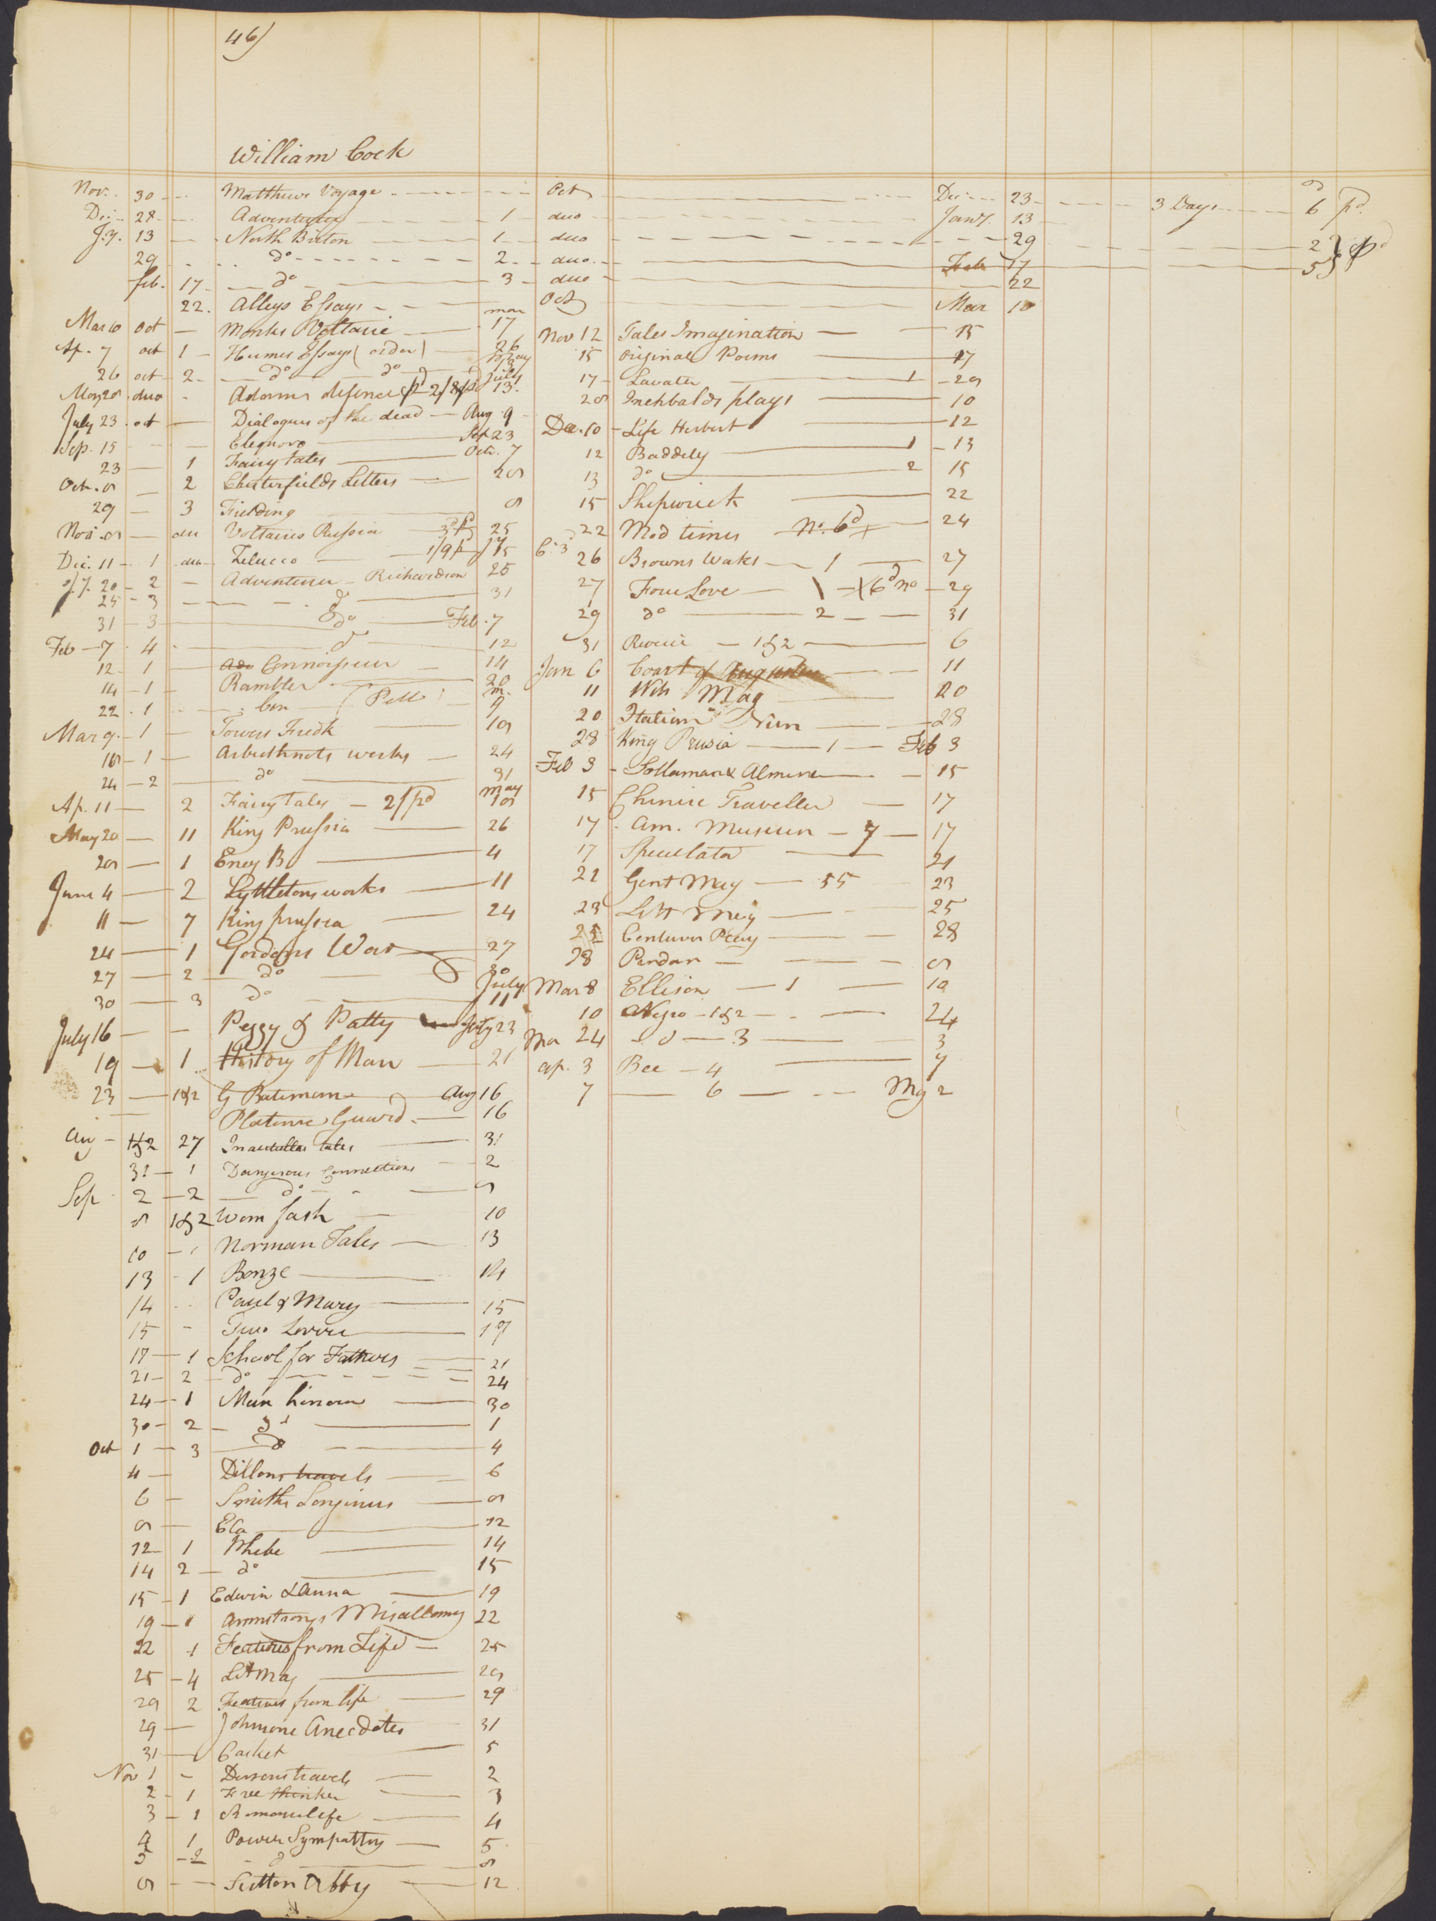 46)
William Cock
Nov. 30 Matthews Voyage Oct Dec 23 3 Days 6d pd
Dec 28 Adventurer 1 duo Jany. 13
Jy. 13 North Briton 1 duo 29 2
29 do 2 duo Feb 17 5
feb. 17 do 3 duo 22
22 Alleys Essays Oct Mar 10
Mar 10 Oct Voltaire mar 17
Ap. 7 oct 1 Humes Essays (order) 26
26 oct 2 do do May
May 28 duo Adams defence pd 2/8 July 13
July 23 oct Dialogues of the dead Aug 9
Sep. 15 Eleonora Sep 23
23 1 Fairy tales Octr. 7
Oct. 8 2 Chesterfields Letters 28
29 3 Fielding 8
Nov. 8 duo Voltaires Russia 25
Dec. 11 1 duo Zelucco 1/9 Jy 15
Jy. 20 2 Adventurer Richardson 25
25 3 do 31
31 3 do Feb. 7
Feb 7 4 do 12
12 1 Connoisseur 14
14 1 Rambler 20
22 1 Con (Pell) m. 9
Mar 9 1 Towers Fredk 18
18 1 Arbuthnots works 24
24 2 do 31
Ap. 11 2 Fairy tales 2/ pd may 18
May 20 11 King Prussia 26
28 1 Ency B 4
June 4 2 Lyttletons works 11
11 7 King prussia 24
24 1 Gordons War 27
27 2 do 30
30 3 do July 11
July 16 Peggy & Patty July 23
19 1 History of Man 21
23 1&2 G Bateman Aug 16
Platonic Guard 16
Aug 1&2 27 tales 31
31 1 Dangerous Connections 2
Sep 2 2 do 8
8 1&2 Wom fash 10
10 1 Norman Tales 13
13 1 Bonze 14
14 Paul & Mary 15
15 Two 17
17 1 School for Fathers 21
21 2 do 24
24 1 Man honour 30
30 2 do 1
Oct 1 3 do 4
4 Dillons travels 6
6 Smiths Longinus 8
8 12
12 1 Phebe 14
14 2 do 15
15 1 Edwin & Anna 19
19 1 Armstrongs Misallamy 22
22 1 Features from Life 25
25 4 Lit Mag 28
29 2 Features from life 29
29 Johnsone Anecdotes 31
31 Casket 5
Nov 1 travels 2
2 1 Free thinker 3
3 1 Romance life 4
4 1 Power Sympathy 5
5 2 do 8
8 Sutton Abby 12
Nov 12 Tales Imagination 15
15 Original Poems 17
17 Lavater 1 28
28 Inchbalds plays 10
Dec. 10 Life Herbert 12
12 Baddely 1 13
13 do 2 15
15 Shipwreck 22
22 Mod times No. 6d 24
26 Browns Waks 1 27
27 Four Love 1 6d no 29
29 do 2 31
31 Reverie 1&2 6
Jan 6 Court of Augustus 11
11 Wth Mag 20
20 Italian Nun 28
28 King Prusia 1 Feb 3
Feb 3 Sollaman & Almena 15
15 Chinise Traveller 17
17 Am. Museum 7 17
17 Speculator 21
21 Gent Mag 55 23
23 Litt Mag 25
25 Plays 28
28 8
Mar 8 Ellison 1 10
10 Negro 1&2 24
Mar 24 do 3 3
ap. 3 Bee 4 7
7 6 My 2